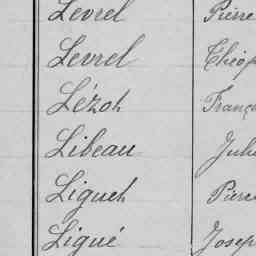 Levrel Pierre
Levrel Théop
Lézoh Franç
Libeau Juli
Ligueh Pierr
Ligué Josep